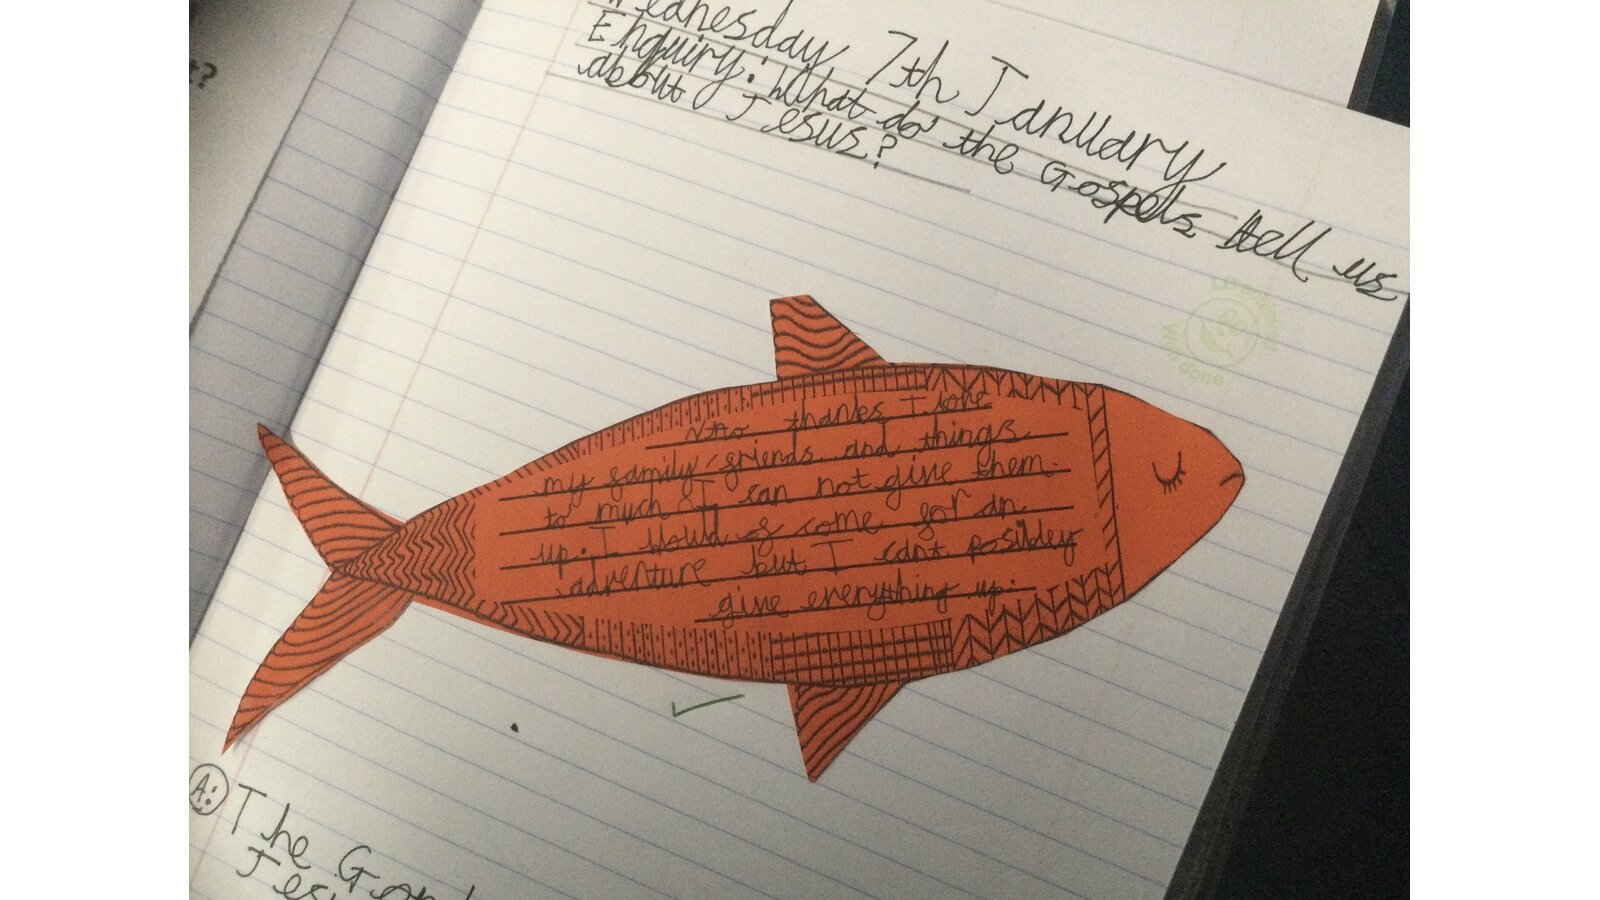 t?
Wednesday 7th January
Enquiry: What do the Gospels tell us
about Jesus?
No thanks I love
my family, friends and things
to much I can not give them
up. I Would of come for an
adventure but I cant possibley
give everything up.
A:
The Gospel
Jesu